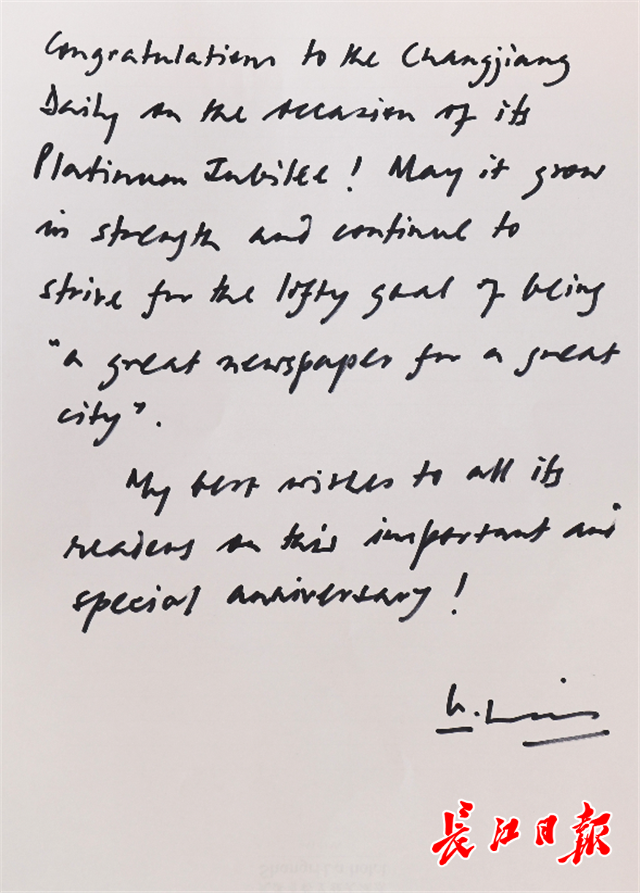 Congratulations to the Changjiang
Daily on the occasion of its
Platinum Jubilee! May it grow
in strength and continue to
strive for the lofty goal of being
"a great newspaper for a great
city".
My best wishes to all its
readers on this important and
special anniversary!
长江日报